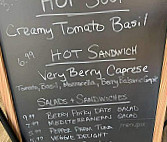 HOT SOUP
Creamy Tomato Basil
6.99 HOT SANDWICH
Very Berry Caprese
Tomato, Basil, Mozzarella, Berry Balsamic
SALADS + SANDWICHES
9.99 BERRY PARTY DATE SALAD
MEDITERRANEAN SALAD
PEPPER TUNA
VEGGIE DELIGHT